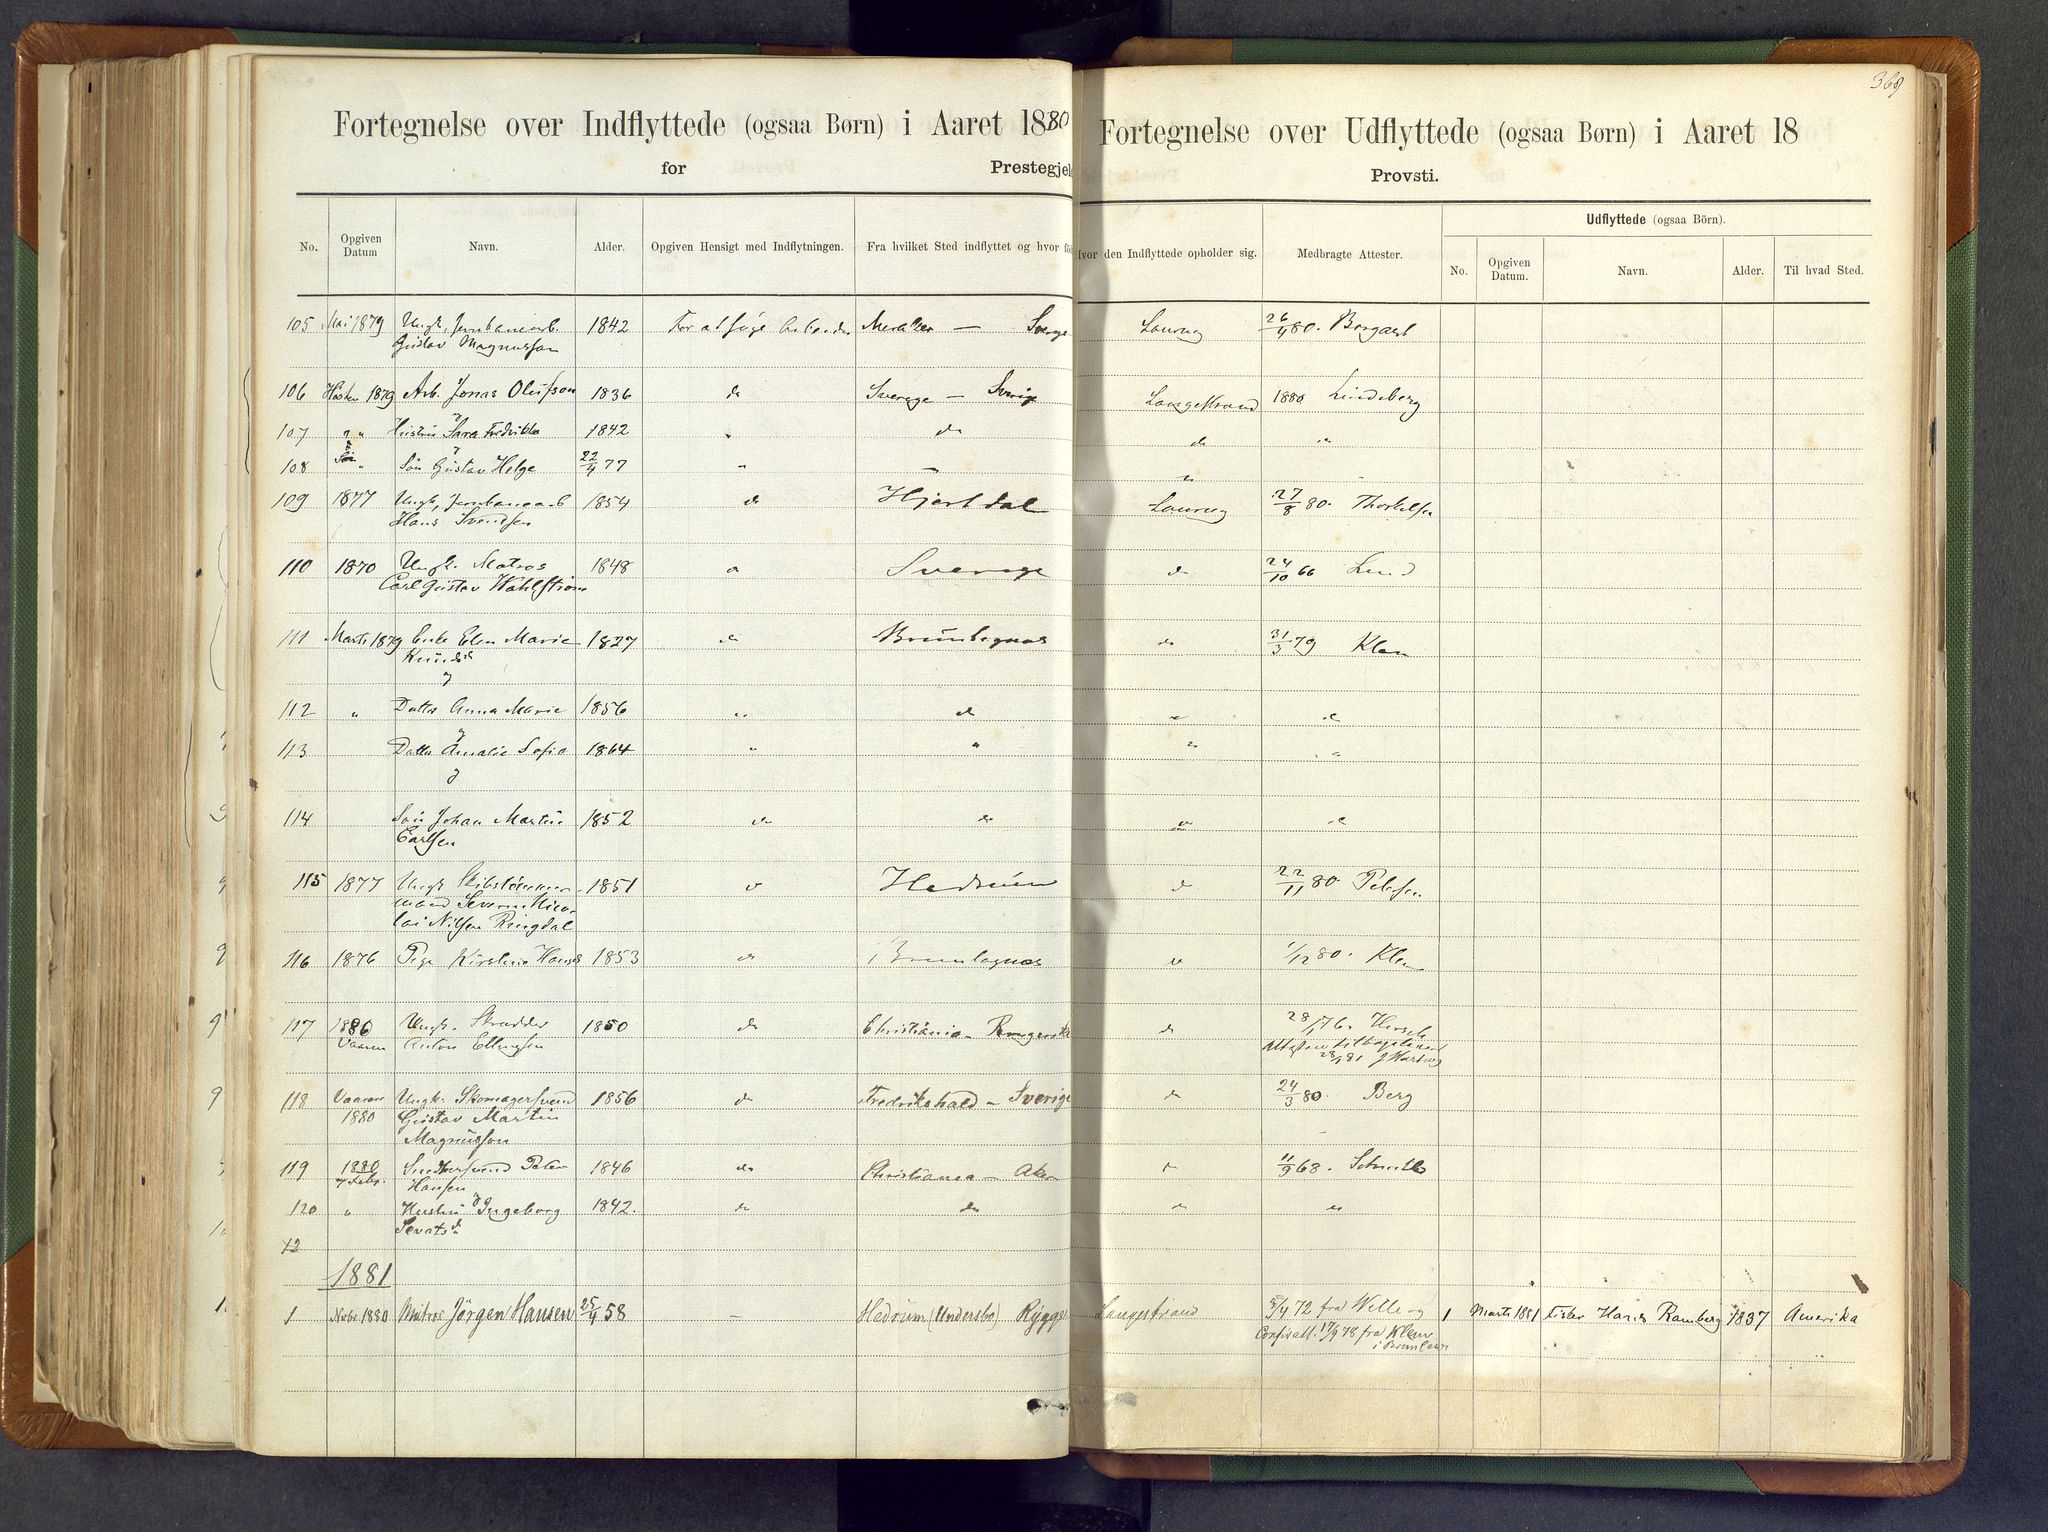 369
Fortegnelse over Indflyttede (ogsaa Børn) i Aaret 1880
for Prestegjel
Fortegnelse over Udflyttede (ogsaa Børn) i Aaret 18
Provsti.
No. Opgiven Datum Navn. Alder. Opgiven Hensigt med Indflytningen. Fra hvilket Sted indflyttet og hvor fø
Hvor den Indflyttede opholder sig. Medbragte Attester. Udflyttede (ogsaa Börn).
No. Opgiven Datum. Navn. Alder. Til hvad Sted.
105 Mai 1879 Ungk. Jernbanearb. 1842 For at søge Arbeide Meraker — Sverge Laurvig 26/4 80.
Gustav Magnusson
106 Høsten 1879 Arb. Jonas Olufson 1836 do Sverige — Sverige Langestrand 1880 Lindeberg
107 " " Hustru Sara Fredrikke 1842 " do do "
108 " Søn Gustav Helge 22/4 77 " — "
109 1877 Ungk. Jernbanearb 1854 do Hjertdal Laurvig 27/8 80. Thorkelsen
Hans Svendsen
110 1870 Ungk. Matros 1848 do Sverige do 24/10 66 Lund
Carl Gustav Wahlström
111 Marts 1879 Enke Elen Marie 1827 do Brunlagnæs do 31/3 79 Klem
Knudsd
112 " Datter Anna Marie 1856 " do " do
113 Datter Amalie Sofie 1864 " " " "
114 Søn Johan Martin 1852 do do do
Carlsen
115 1877 Ungk Skibstømmer- 1851 do Hedrum do 22/11 80. Petersen
mand Severin Nico-
lai Nilsen Ringdal
116 1876 Pige Kirstine Hansd 1853 do Brunlagnæs do 1/12 80. Klem
117 1880 Ungk. Skrædder 1850 do Christiania - Ringerike do 28/1 76.
Vaaren Anton Ellingsen
28/1 81
118 Vaaren Ungk. Skomagersvend 1856 do Fredrikshald - Sverige do 24/3 80 Berg
1880 Gustav Martin
Magnusson
119 1880 Snedkersvend Peter 1846 do Christiania - Aker do 11/9 68.
Febr. Hansen
120 " Hustru Ingeborg 1842. do do do "
Sevatsd
12
1881
1 Novbr 1880 Matros Jörgen Hansen 25/4 58 — Hedrum (Undersbo) Rygge Langestrand 5/4 72 fra Wille og 1 Marts 1881 Fisker Hans Ramberg 1837 Amerika
Confir.att. 17/9 78 fra Klem
i Brunlanæs